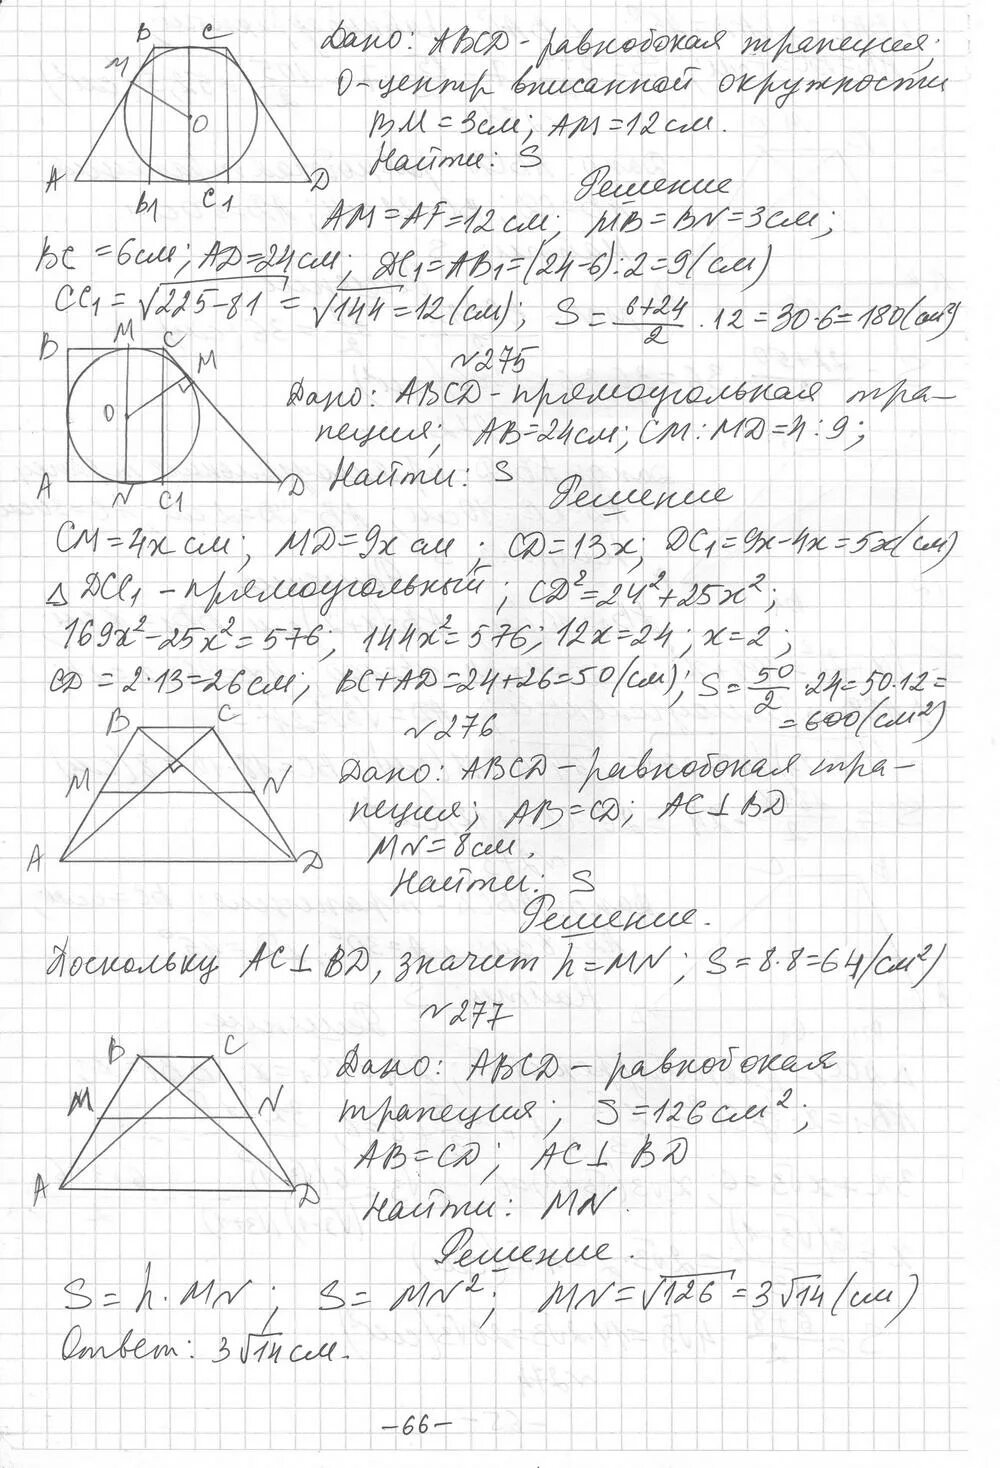 B C
M
O
A D
B1 C1
Дано: ABCD - равнобокая трапеция;
O-центр вписанной окружности
BM = 3см; AM = 12 см.
Найти: S
Решение
AM = AF = 12 см; MB = BN = 3см;
BC = 6см; AD = 24 см; DC1 = AB1 = (24-6):2 = 9(см)
CC1 = √225-81 = √144 = 12 (см); S = 6+24/2 · 12 = 30·6 = 180(см²)
№275
B M C
M
O
A N C1 D
Дано: ABCD - прямоугольная тра-
пеция; AB = 24см; CM : MD = 4 : 9;
Найти: S
Решение
CM = 4x см; MD = 9x см; CD = 13x; DC1 = 9x-4x = 5x(см)
△ DCC1 - прямоугольный; CD² = 24² + 25x²;
169x² - 25x² = 576; 144x² = 576; 12x = 24; x = 2;
CD = 2·13 = 26см; BC + AD = 24 + 26 = 50 (см); S = 50/2 · 24 = 50·12 =
= 600(см²)
№276
B C
M N
A D
Дано: ABCD - равнобокая тра-
пеция; AB = CD; AC ⊥ BD
MN = 8см.
Найти: S
Решение.
Поскольку AC ⊥ BD, значит h = MN; S = 8·8 = 64(см²)
№277
B C
M N
A D
Дано: ABCD - равнобокая
трапеция; S = 126 см²;
AB = CD; AC ⊥ BD
Найти: MN.
Решение.
S = h · MN; S = MN²; MN = √126 = 3√14 (см)
Ответ: 3√14 см.
-66-